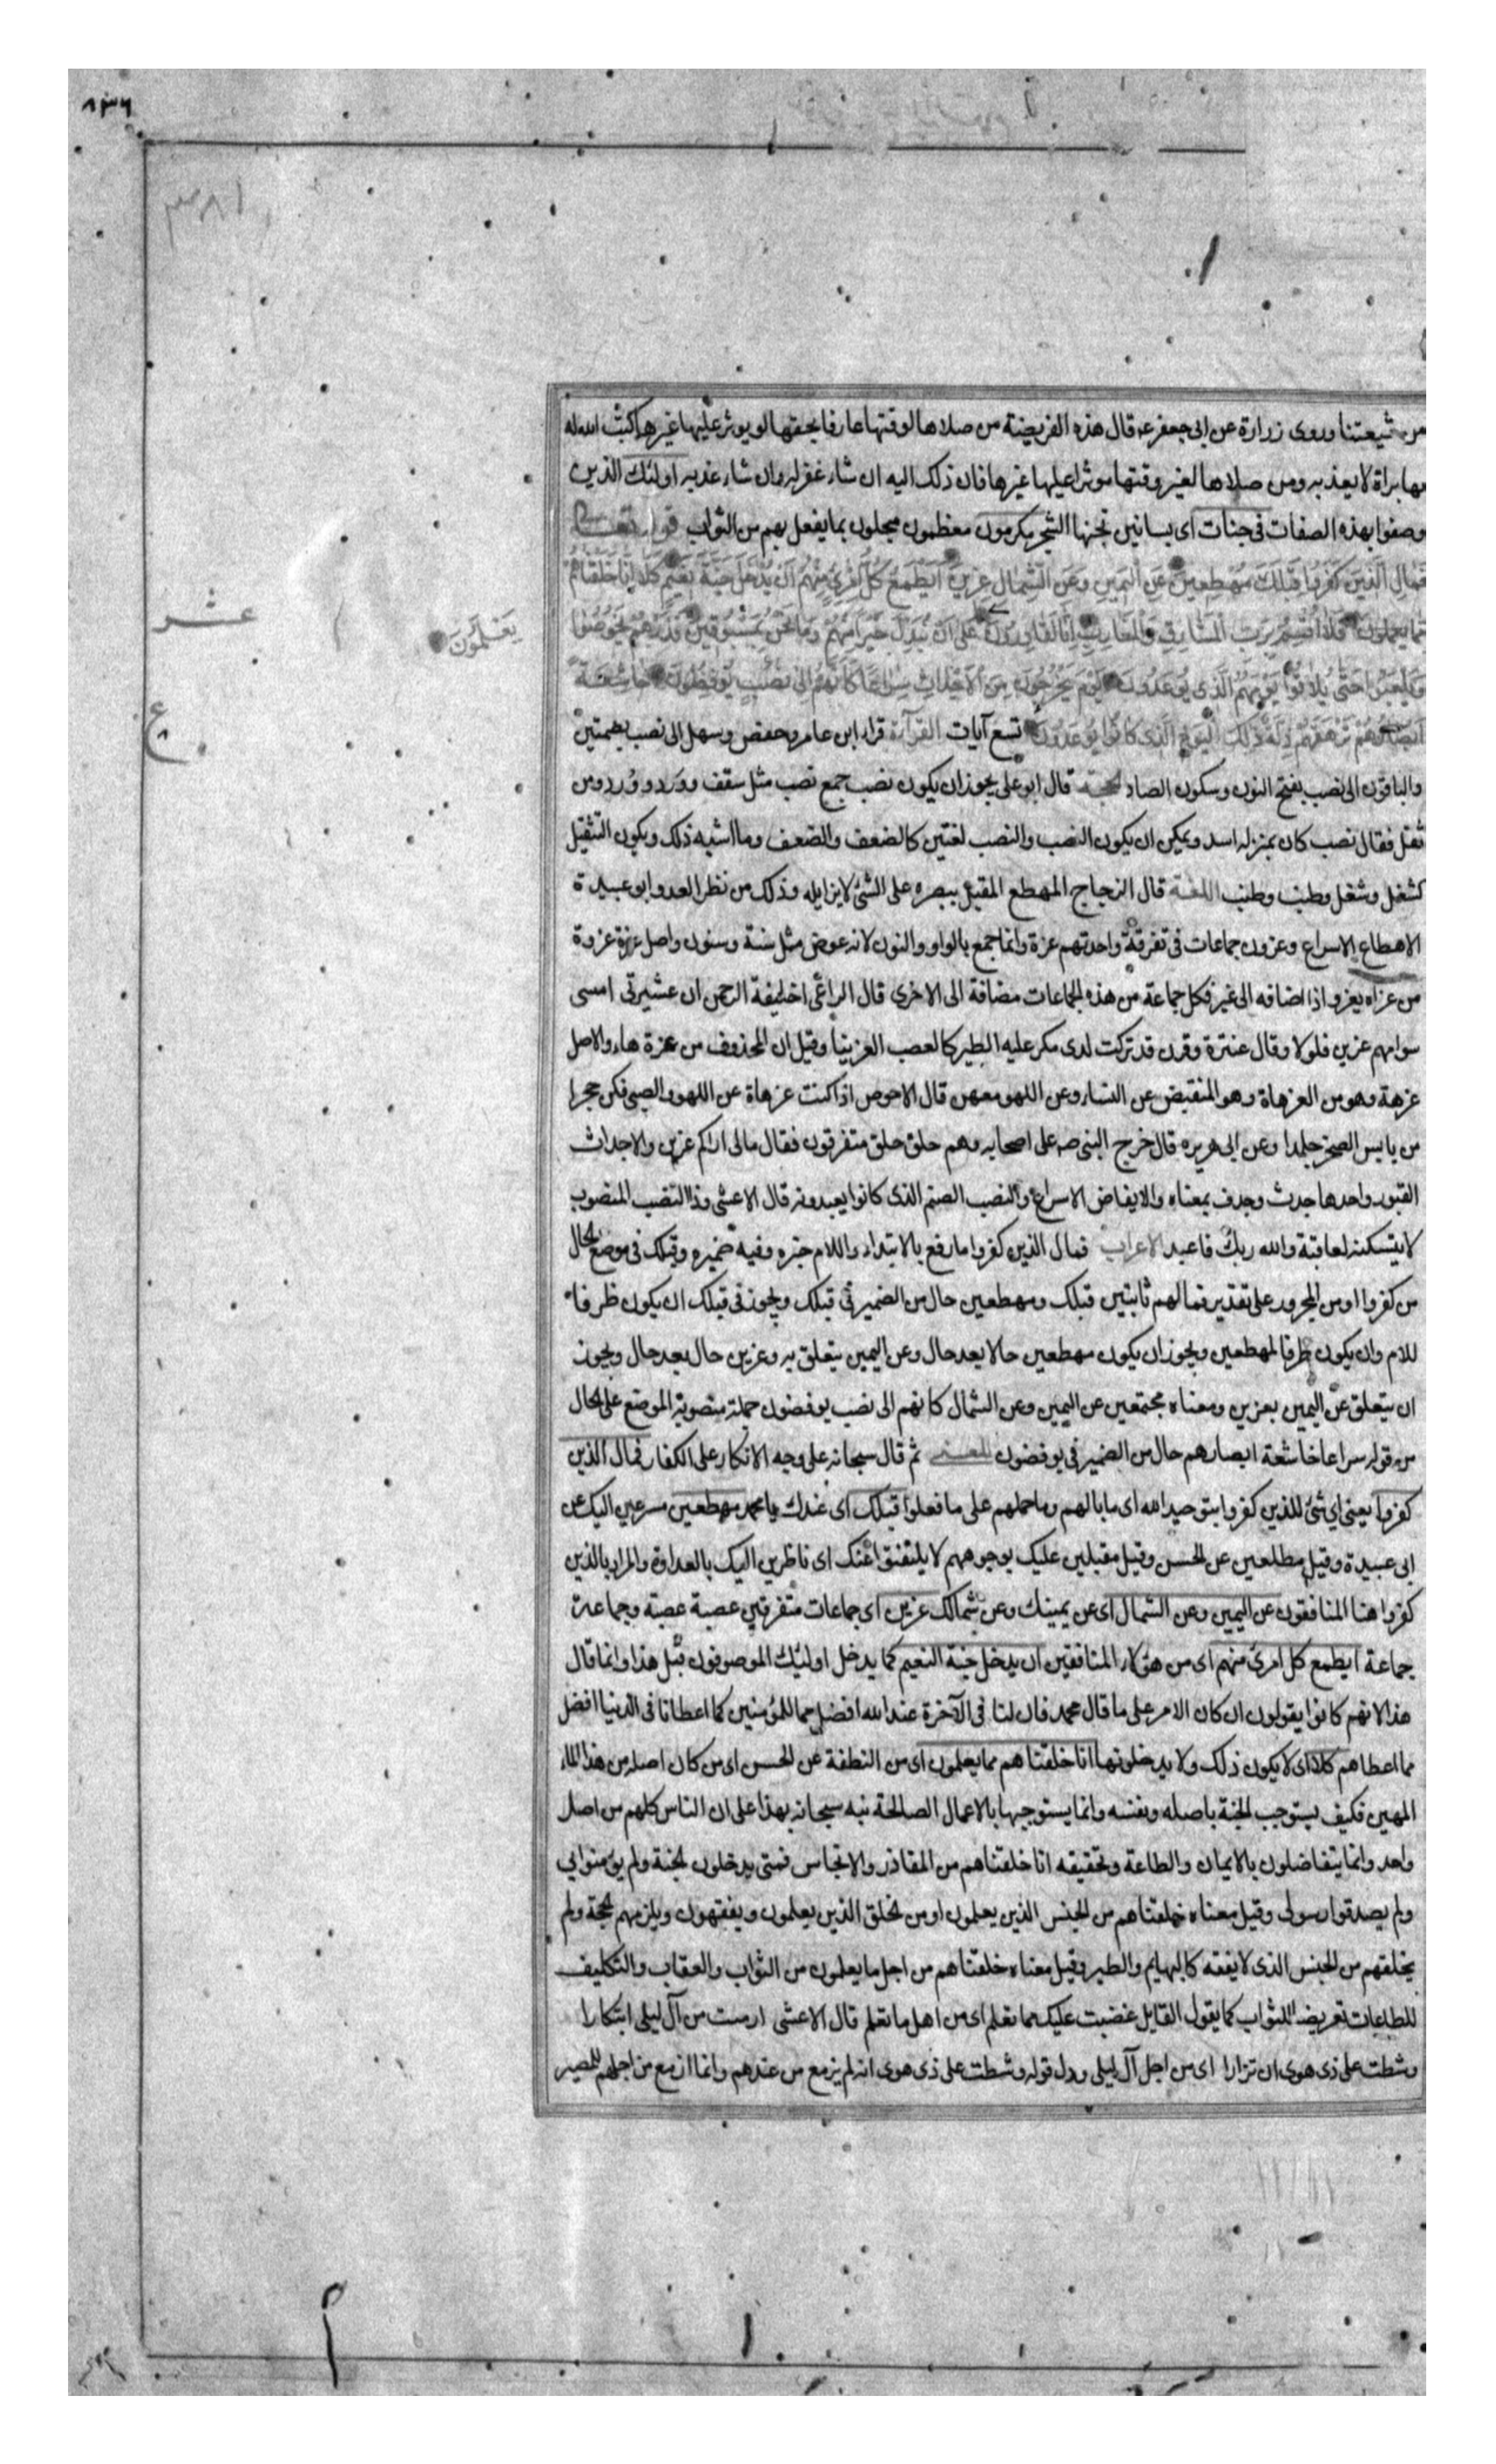 ٨٣٦
من شيعتنا وروى زرارة عن ابى جعفر ع قال هذه الفريضة من صلاها لوقتها عارفا بحقها لا يوثر عليها غيرها كتب الله له
بها براة لا يعذبه ومن صلاها لغير وقتها موثرا عليها غيرها فان ذلك اليه ان شاء غفر له وان شاء عذبه اولئك الذين
وصفوا بهذه الصفات فى جنات اى بساتين تجنها الشجر مكرمون معظمون مبجلون بما يفعل بهم من الثواب قوله تعالى
فَمَالِ الَّذِينَ كَفَرُوا قِبَلَكَ مُهْطِعِينَ عَنِ الْيَمِينِ وَعَنِ الشِّمَالِ عِزِينَ أَيَطْمَعُ كُلُّ امْرِئٍ مِنْهُمْ أَنْ يُدْخَلَ جَنَّةَ نَعِيمٍ كَلَّا إِنَّا خَلَقْنَاهُمْ
مِمَّا يَعْلَمُونَ فَلَا أُقْسِمُ بِرَبِّ الْمَشَارِقِ وَالْمَغَارِبِ إِنَّا لَقَادِرُونَ عَلَى أَنْ نُبَدِّلَ خَيْرًا مِنْهُمْ وَمَا نَحْنُ بِمَسْبُوقِينَ فَذَرْهُمْ يَخُوضُوا
يَعْلَمُونَ
عشر
وَيَلْعَبُوا حَتَّى يُلَاقُوا يَوْمَهُمُ الَّذِي يُوعَدُونَ يَوْمَ يَخْرُجُونَ مِنَ الْأَجْدَاثِ سِرَاعًا كَأَنَّهُمْ إِلَى نُصُبٍ يُوفِضُونَ خَاشِعَةً
أَبْصَارُهُمْ تَرْهَقُهُمْ ذِلَّةٌ ذَلِكَ الْيَوْمُ الَّذِي كَانُوا يُوعَدُونَ تسع آيات القرآءة قرا ابن عامر وحفص وسهل الى نصب بضمتين
ع
٨
والباقون الى نصب بفتح النون وسكون الصاد الحجة قال ابو على يجوز ان يكون نصب جمع نصب مثل سقف وورد وورد ومن
ثقل فقال نصب كان بمنزله اسد ويمكن ان يكون النصب والنصب لغتين كالضعف والضعف وما اشبه ذلك ويكون التثقيل
كشغل وشغل وطنب وطنب اللغة قال الزجاج المهطع المقبل ببصره على الشئ لا يزايله وذلك من نظر العدو ابو عبيدة
الاهطاع الاسراع وعزون جماعات فى تفرقة واحدتهم عزة وانما جمع بالواو والنون لانه عوض مثل سنة وسنون واصل عزة عزوة
من عزاه يعزو اذا اضافه الى غير فكل جماعة من هذه الجماعات مضافة الى الاخرى قال الراعى اخليفة الرحمن ان عشيرتى امسى
سوامهم عزين فلولا وقال عنترة وقرن قد تركت لدى مكر عليه الطير كالعصب العزينا وقيل ان المحذوف من عزة هاء والاصل
عزهة وهو من العزهاة وهو المنقبض عن النساء وعن اللهو معهن قال الاحوص اذا كنت عزهاة عن اللهو والصبى فكن حجرا
من يابس الصخر جلمدا وعن ابى هريره قال خرج النبى صه على اصحابه وهم حلق حلق متفرقون فقال مالى اراكم عزين والاجداث
القبور واحدها جدث وجدف بمعناه والايفاض الاسراع والنصب الصنم الذى كانوا يعبدونه قال الاعشى وذا النصب المنصوب
لا تنسكنه لعاقبة والله ربك فاعبد الاعراب فمال الذين كفروا ما رفع بالابتداء واللام خبره وفيه ضميره وقبلك فى موضع الحال
من كفروا او من المجرور على تقدير فما لهم ثابتين قبلك ومهطعين حال من الضمير فى قبلك ويجوز فى قبلك ان يكون ظرفا
للام وان يكون ظرفا لمهطعين ويجوز ان يكون مهطعين حالا بعد حال وعن اليمين يتعلق به وعزين حال بعد حال ويجوز
ان يتعلق عن اليمين بعزين ومعناه مجتمعين عن اليمين وعن الشمال كانهم الى نصب يوفضون جملة منصوبة الموضع على الحال
من قوله سراعا خاشعة ابصارهم حال من الضمير فى يوفضون المعنى ثم قال سبحانه على وجه الانكار على الكفار فمال الذين
كفروا يعنى اي شئ للذين كفروا بتوحيد الله اى ما بالهم وما حملهم على ما فعلوا قبلك اى عندك يا محمد مهطعين مسرعين اليك عن
ابى عبيدة وقيل مطلعين عن الحسن وقيل مقبلين عليك بوجوههم لا يلتفتوا عنك اى ناظرين اليك بالعداوة والمراد بالذين
كفروا هنا المنافقون عن اليمين وعن الشمال اى عن يمينك وعن شمالك عزين اى جماعات متفرقين عصبة عصبة وجماعة
جماعة ايطمع كل امرئ منهم اى من هؤلاء المنافقين ان يدخل جنة النعيم كما يدخل اولئك الموصوفون قبل هذا وانما قال
هذا لانهم كانوا يقولون ان كان الامر على ما قال محمد فان لنا فى الآخرة عند الله افضل مما للمؤمنين كما اعطانا فى الدنيا افضل
مما اعطاهم كلا اى لا يكون ذلك ولا يدخلونها انا خلقناهم مما يعلمون اى من النطفة عن الحسن اى من كان اصله من هذا الماء
المهين فكيف يستوجب الجنة باصله وبنفسه وانما يستوجبها بالاعمال الصالحة نبه سبحانه بهذا على ان الناس كلهم من اصل
واحد وانما يتفاضلون بالايمان والطاعة وتحقيقه انا خلقناهم من المقاذر والانجاس فمتى يدخلون الجنة ولم يؤمنوا بي
ولم يصدقوا رسولى وقيل معناه خلقناهم من الجنس الذين يعلمون او من الخلق الذين يعلمون ويفقهون ويلزمهم الحجة ولم
يخلقهم من الجنس الذى لا يفقه كالبهايم والطير وقيل معناه خلقناهم من اجل ما يعلمون من الثواب والعقاب والتكليف
للطاعات تعريضا للثواب كما يقول القايل غضبت عليك مما تعلم اى من اهل ما تعلم قال الاعشى ازمعت من آل ليلى ابتكارا
وشطت على ذى هوى ان تزارا اى من اجل آل ليلى ودل قوله وشطت على ذى هوى انه لم يزمع من عندهم وانما ازمع من اجلهم للمصير